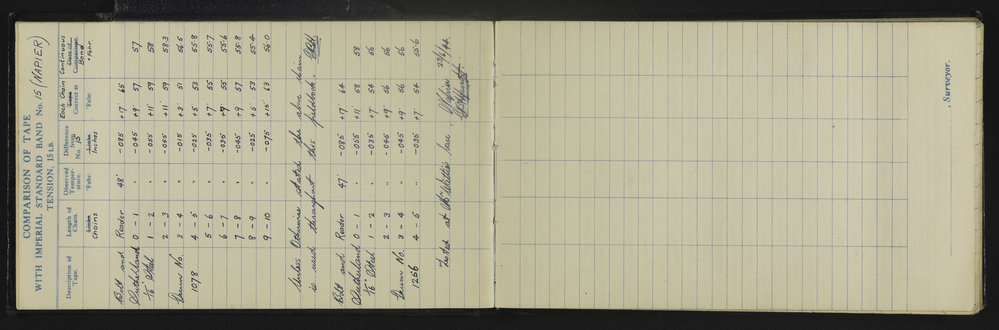 COMPARISON OF TAPE
WITH IMPERIAL STANDARD BAND No. 15 (NAPIER)
TENSION, 15 LB.
Description of Tape. Length of Chain. Links Chains Observed Temperature. °Fahr. Difference from No. 15 Links Inches Each Chain Correct at °Fahr. Continuous Band °Fahr.
Bolt and Reader 48° -·085 +17° 65
Sutherland 0 – 1 " -·045 +9° 57 57
1 – 2 " -·055 +11° 59 58
2 – 3 " -·055 +11° 59 58·3
Drum No. 3 – 4 " -·015 +3 51 56·5
1078 4 – 5 " -·025 +5 53 55·8
5 – 6 " -·035 +7 55 55·7
6 – 7 " -·035 +7 55 55·6
7 – 8 " -·045 +9° 57 55·8
8 – 9 " -·025 +5 53 55·4
9 – 10 " -·075 +15° 63 56·0
Unless Otherwise stated the above chain
is used throughout this fieldbook.
Bolt and Reader 47° -·085 +17 64
Sutherland 0 – 1 " -·055 +11 58 58
1 – 2 " -·035 +7 54 56
2 – 3 " -·045 +9 56 56
Drum No. 3 – 4 " -·045 +9 56 56
1266 4 – 5 " -·035 +7 54 55·6
Tested at Napier 23/6/44
, Surveyor.